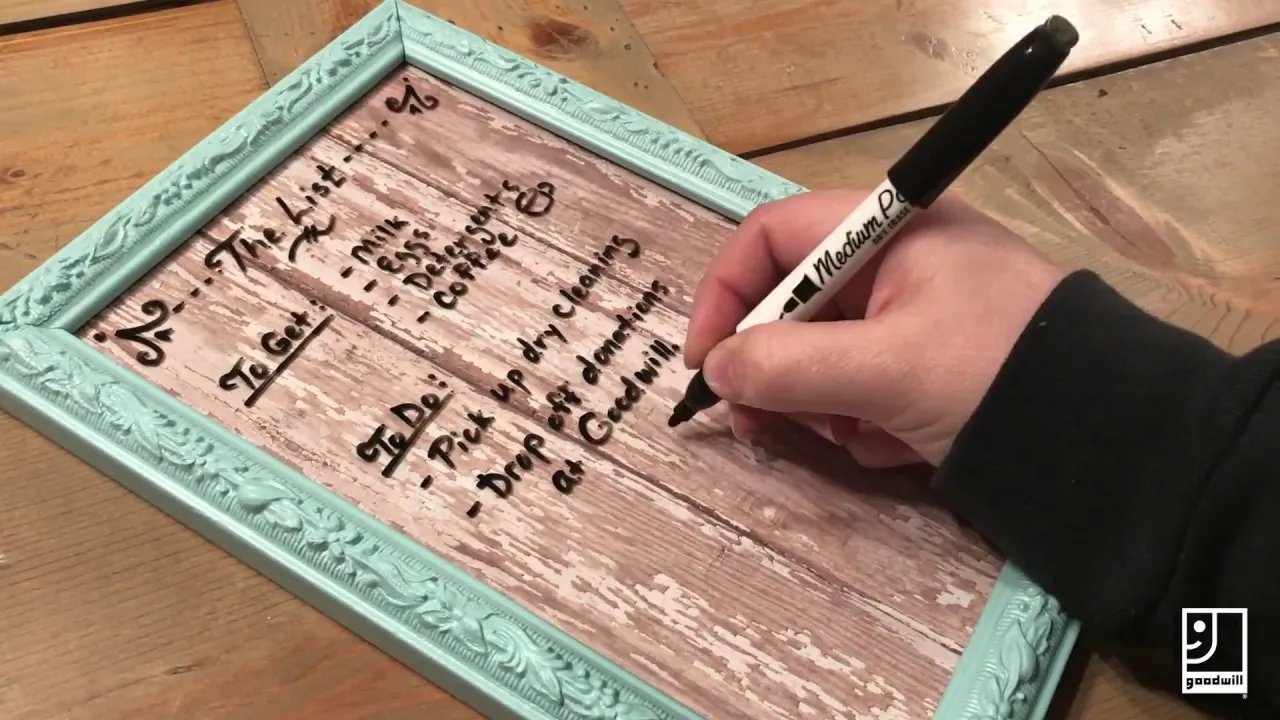 The List
To Get:
- Milk
- Eggs
- Detergents
- Coffee
To Do:
- Pick up dry cleaning
- Drop off donations
at Goodwill.
Medium P
goodwill